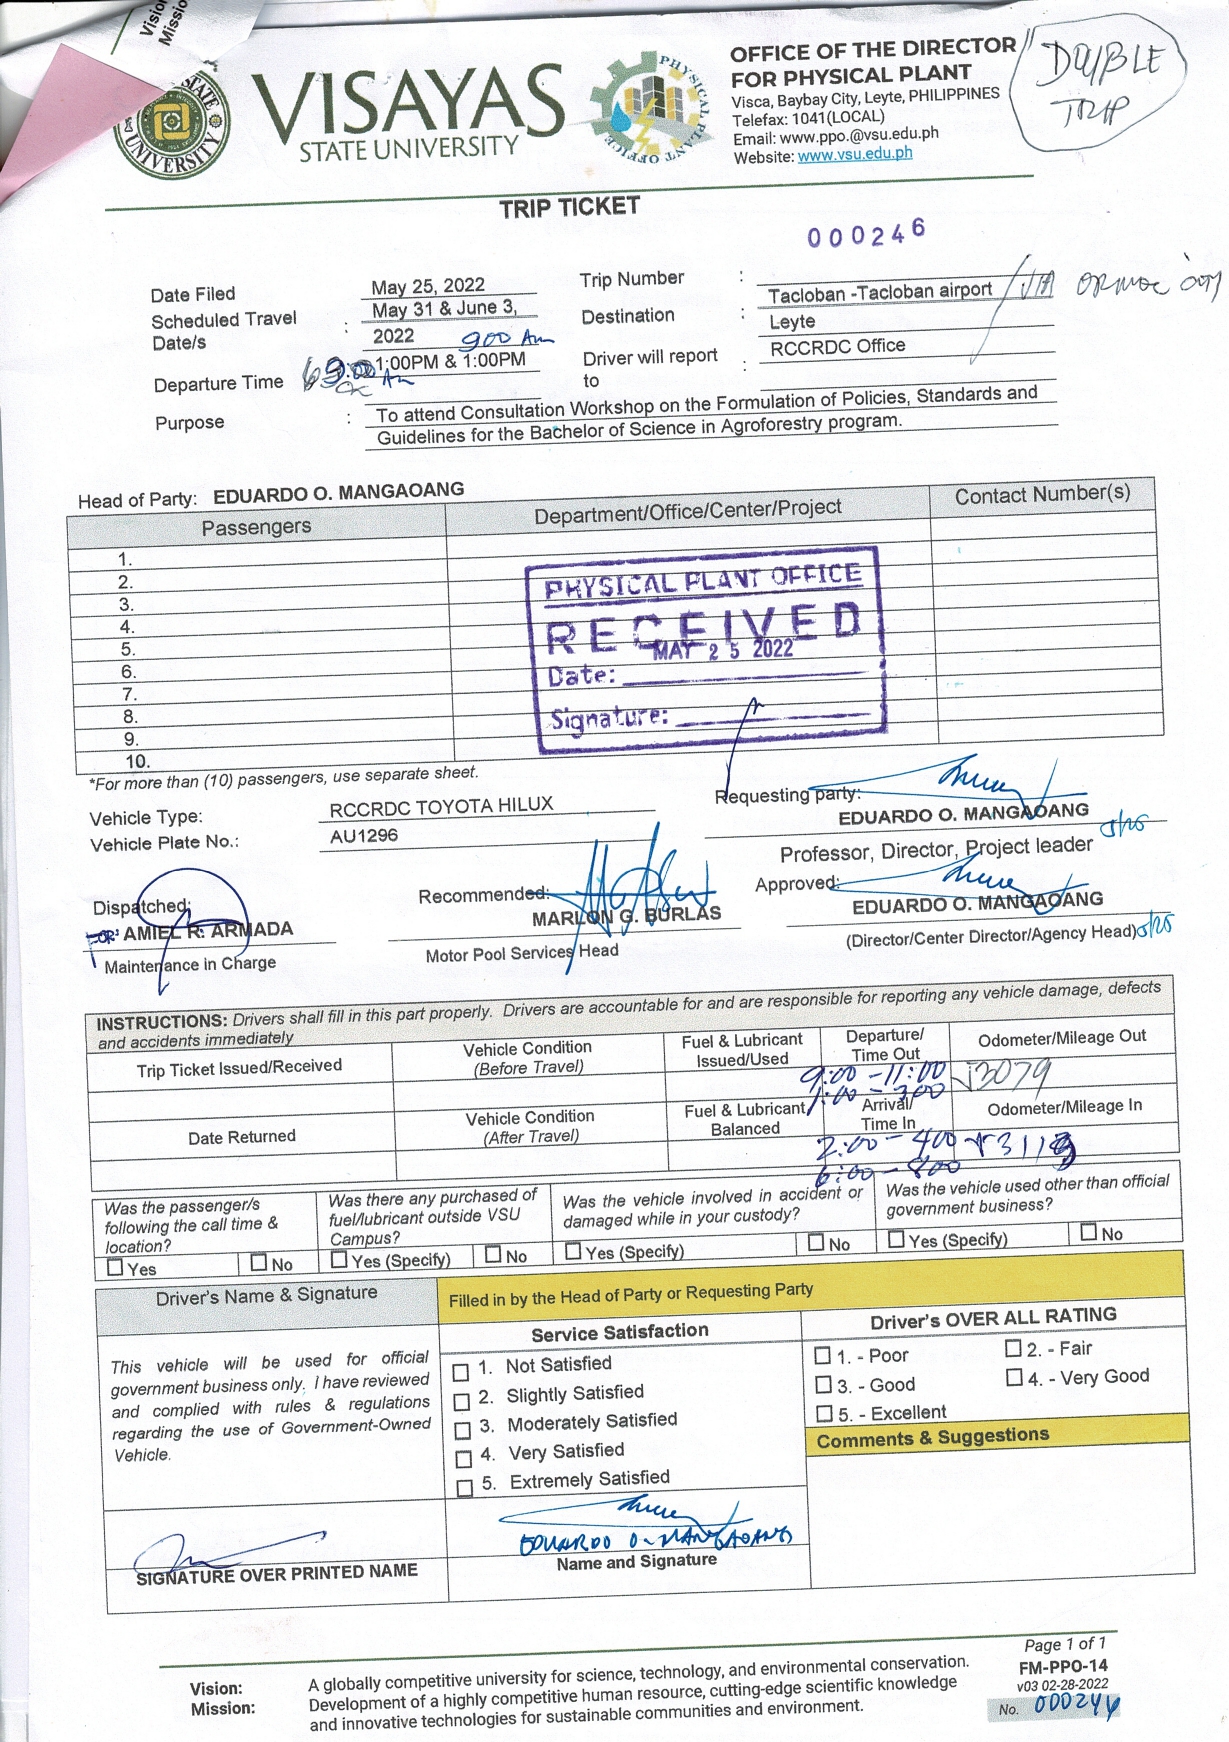 Vision
Mission
VISAYAS
STATE UNIVERSITY
STATE
UNIVERSITY
PHYSICAL PLANT OFFICE
OFFICE OF THE DIRECTOR
FOR PHYSICAL PLANT
Visca, Baybay City, Leyte, PHILIPPINES
Telefax: 1041(LOCAL)
Email: www.ppo.@vsu.edu.ph
Website: www.vsu.edu.ph
DOUBLE
TRIP
TRIP TICKET
000246
Date Filed May 25, 2022
Scheduled Travel Date/s : May 31 & June 3, 2022
900 Am
Departure Time 9:00 Am 1:00PM & 1:00PM
Trip Number :
Destination : Tacloban -Tacloban airport VIA ORMOC CITY
Leyte
Driver will report to : RCCRDC Office
Purpose : To attend Consultation Workshop on the Formulation of Policies, Standards and
Guidelines for the Bachelor of Science in Agroforestry program.
Head of Party: EDUARDO O. MANGAOANG
Passengers Department/Office/Center/Project Contact Number(s)
1.
2.
3.
4.
5.
6.
7.
8.
9.
10.
PHYSICAL PLANT OFFICE
RECEIVED
MAY 25 2022
Date:
Signature:
*For more than (10) passengers, use separate sheet.
Vehicle Type: RCCRDC TOYOTA HILUX
Vehicle Plate No.: AU1296
Requesting party:
EDUARDO O. MANGAOANG 5/25
Professor, Director, Project leader
Dispatched:
FOR: AMIEL R. ARMADA
Maintenance in Charge
Recommended:
MARLON G. BURLAS
Motor Pool Services Head
Approved:
EDUARDO O. MANGAOANG
(Director/Center Director/Agency Head) 5/25
INSTRUCTIONS: Drivers shall fill in this part properly. Drivers are accountable for and are responsible for reporting any vehicle damage, defects
and accidents immediately
Trip Ticket Issued/Received
Vehicle Condition
(Before Travel)
Fuel & Lubricant
Issued/Used
Departure/
Time Out
Odometer/Mileage Out
9:00 - 11:00
1:00 - 300
13079
Date Returned
Vehicle Condition
(After Travel)
Fuel & Lubricant
Balanced
Arrival/
Time In
Odometer/Mileage In
2:00 - 400
6:00 - 800
Was the passenger/s
following the call time &
location?
Yes No
Was there any purchased of
fuel/lubricant outside VSU
Campus?
Yes (Specify) No
Was the vehicle involved in accident or
damaged while in your custody?
Yes (Specify) No
Was the vehicle used other than official
government business?
Yes (Specify) No
Driver's Name & Signature
Filled in by the Head of Party or Requesting Party
This vehicle will be used for official
government business only. I have reviewed
and complied with rules & regulations
regarding the use of Government-Owned
Vehicle.
Service Satisfaction
1. Not Satisfied
2. Slightly Satisfied
3. Moderately Satisfied
4. Very Satisfied
5. Extremely Satisfied
Driver's OVER ALL RATING
1. - Poor 2. - Fair
3. - Good 4. - Very Good
5. - Excellent
Comments & Suggestions
SIGNATURE OVER PRINTED NAME
EDUARDO O. MANGAOANG
Name and Signature
Page 1 of 1
FM-PPO-14
v03 02-28-2022
No. 000246
Vision: A globally competitive university for science, technology, and environmental conservation.
Mission: Development of a highly competitive human resource, cutting-edge scientific knowledge
and innovative technologies for sustainable communities and environment.